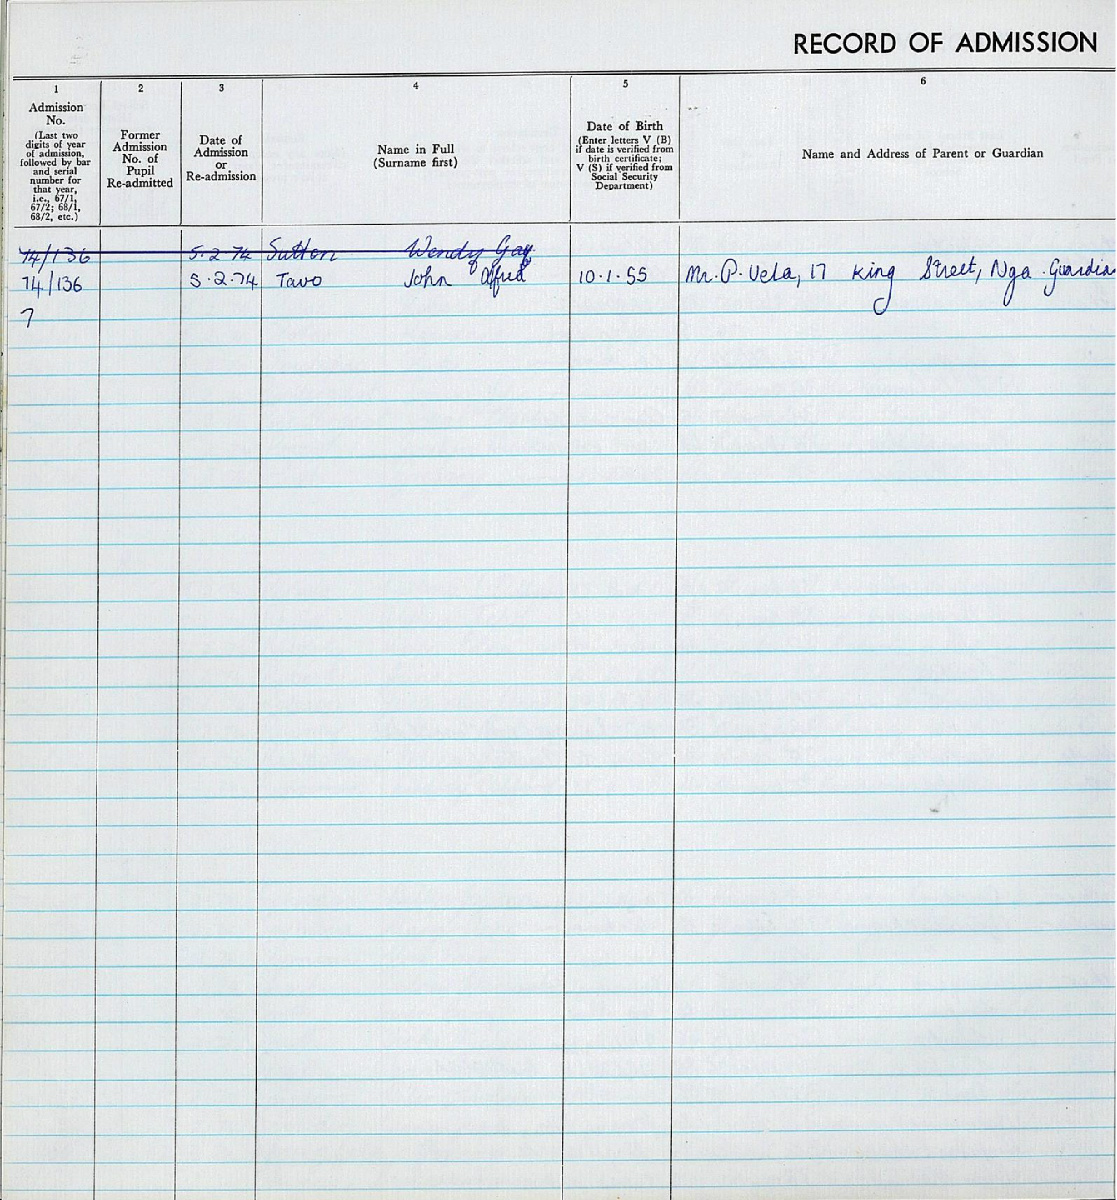 RECORD OF ADMISSION
1 2 3 4 5 6
Admission No. (Last two digits of year of admission, followed by bar and serial number for that year, i.e., 67/1, 67/2; 68/1, 68/2, etc.)
Former Admission No. of Pupil Re-admitted
Date of Admission or Re-admission
Name in Full (Surname first)
Date of Birth (Enter letters V (B) if date is verified from birth certificate; V (S) if verified from Social Security Department)
Name and Address of Parent or Guardian
74/136 5.2.74 Sutton Wendy Gay
74/136 5.2.74 Tavo John Alfred 10.1.55 Mr. P. Vela, 17 King Street, Nga. Guardian
7